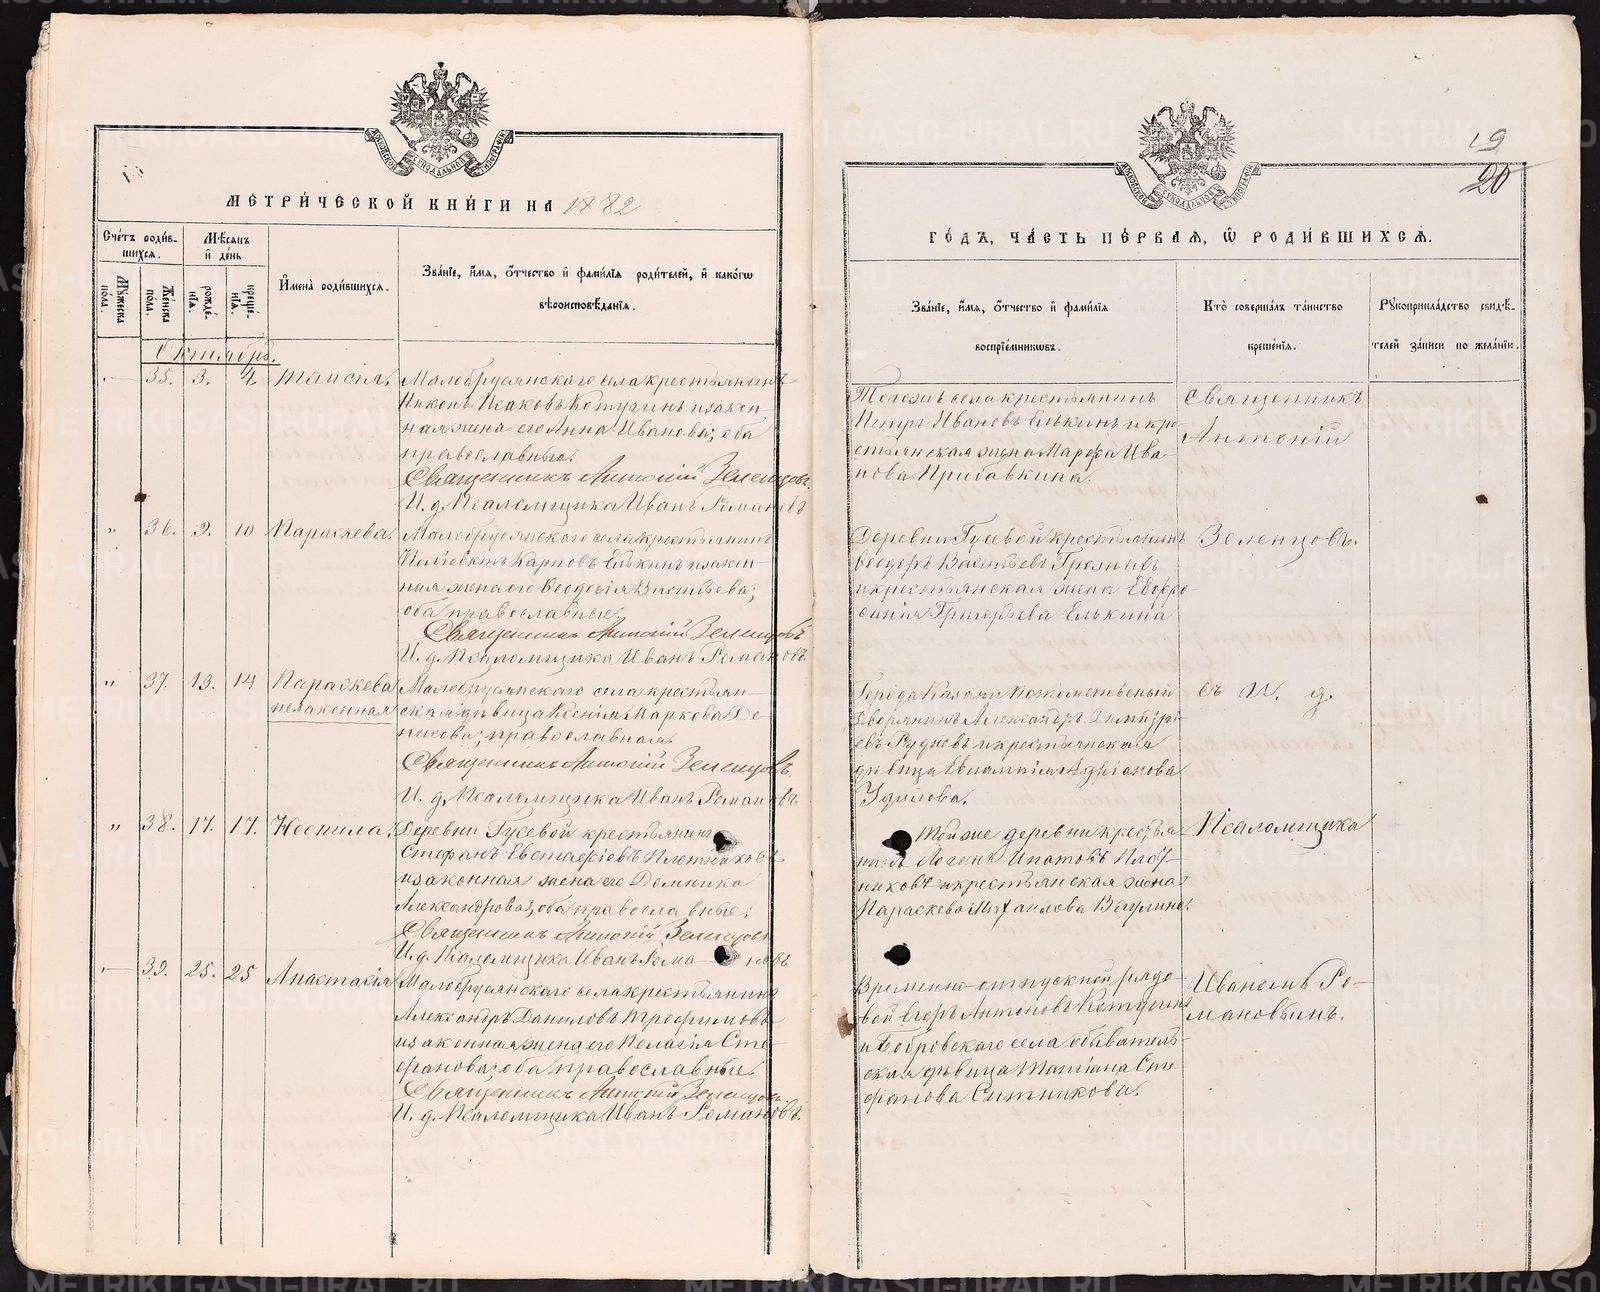 МЕТРИЧЕСКОЙ КНИГИ НА 1882
Счетъ родив-
шихся.
Мѣсяцъ
и день
Мужеска пола.
Женска пола.
рожде-
нія.
креще-
нія.
Имена родившихся.
Званіе, имя, отчество и фамилія родителей, и какого
вѣроисповѣданія.
Октябрь.
35. 3. 4 Таисія.
Малобрусянскаго села крестьянинъ
Никонъ Исаковъ Котугинъ и закон-
ная жена его Анна Иванова; оба
православные.
Священникъ Антоній Зеленцовъ.
И. д. Псаломщика Иванъ Романовъ
" 36. 9. 10 Параскева.
Малобрусянскаго села крестьянинъ
Карповъ Елькинъ и закон-
ная жена его Ѳеодосія Васильева;
оба православные.
Священникъ Антоній Зеленцовъ
И. д. Псаломщика Иванъ Романовъ
" 37. 13. 14 Параскева
незаконная
Малобрусянскаго села крестьян-
ская дѣвица Ксенія Маркова Де-
нисова; православная.
Священникъ Антоній Зеленцовъ
И. д. Псаломщика Иванъ Романовъ
" 38. 17. 17. Неонила.
Деревни Гусевой крестьянинъ
Стефанъ Евстафіевъ Плотниковъ
и законная жена его Домника
Александрова; оба православные;
Священникъ Антоній Зеленцовъ
И. д. Псаломщика Иванъ Рома новъ
39. 25. 25 Анастасія
Малобрусянскаго села крестьянинъ
Александръ Даниловъ Трофимовъ
и законная жена его Пелагія Сте-
фанова; оба православные.
Священникъ Антоній Зеленцовъ.
И. д. Псаломщика Иванъ Романовъ.
19
20
ГОДЪ, ЧАСТЬ ПЕРВАЯ, Ѿ РОДИВШИХСЯ.
Званіе, имя, отчество и фамилія
воспріемниковъ.
Кто совершалъ таинство
крещенія.
Рукоприкладство свидѣ-
телей записи по желанію.
Тогожъ села крестьянинъ
Петръ Ивановъ Елькинъ и кре-
стьянская жена Марѳа Ива-
нова Прибавкина.
Деревни Гусевой крестьянинъ
Ѳеодоръ Васильевъ Грозныхъ
и крестьянская жена Евфро-
синія Григорьева Елькина
Города Казани Потомственный
Дворянинъ Александръ Димитрі-
евъ Рудневъ и крестьянская
дѣвица Евлампія Адріанова
Удилова.
Той же деревни крестья-
нинъ Логинъ Ипатовъ Плот-
никовъ и крестьянская жена
Параскева Михаилова Ваулина.
Временно-отпускной рядо-
вой Егоръ Антоновъ Котугинъ
и Бобровскаго села обыватель-
ская дѣвица Татіана Сте-
фанова Ситникова.
Священникъ
Антоній
Зеленцовъ.
съ И. д.
Псаломщика
Иваномъ Ро-
мановымъ.